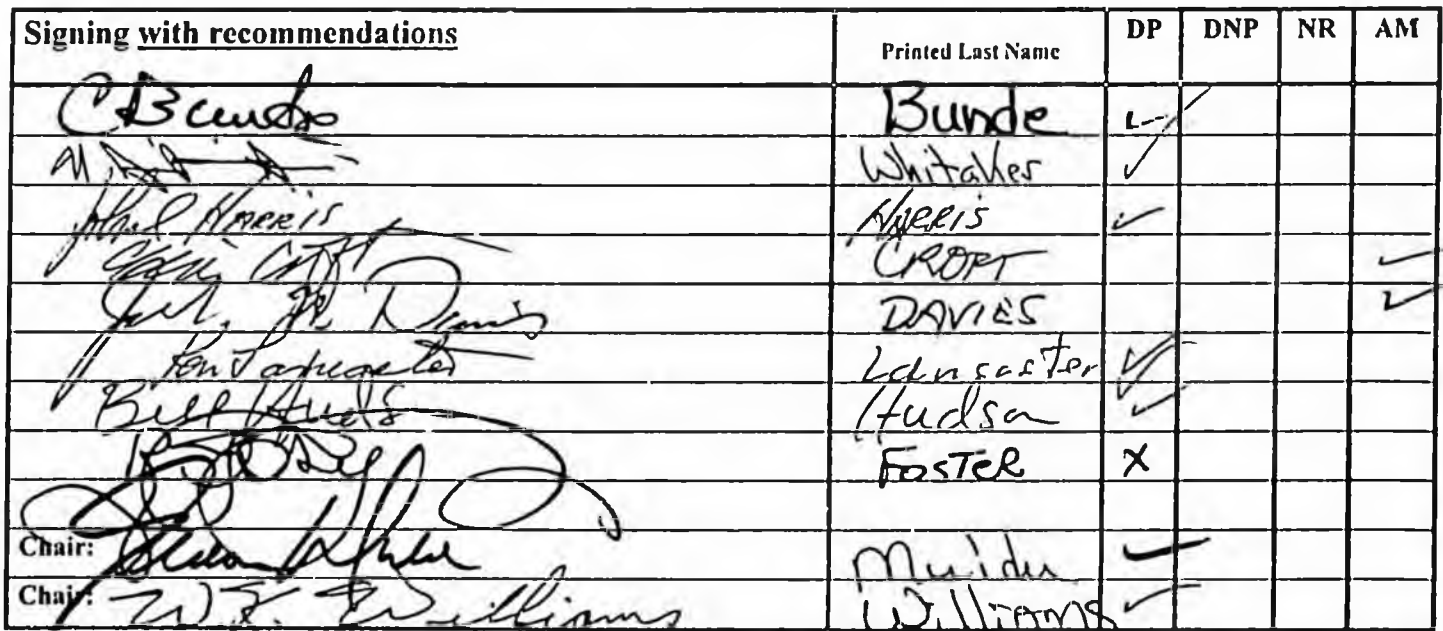 Signing with recommendations Printed Last Name DP DNP NR AM
C Bunde Bunde ✓
Whitaker ✓
Harris HARRIS ✓
Croft CROFT ✓
Davis DAVIES ✓
Ken Lancaster Lancaster ✓
Bill Huds Hudson ✓
FOSTER X
Chair: ✓
Chair: W. K. Williams Williams ✓